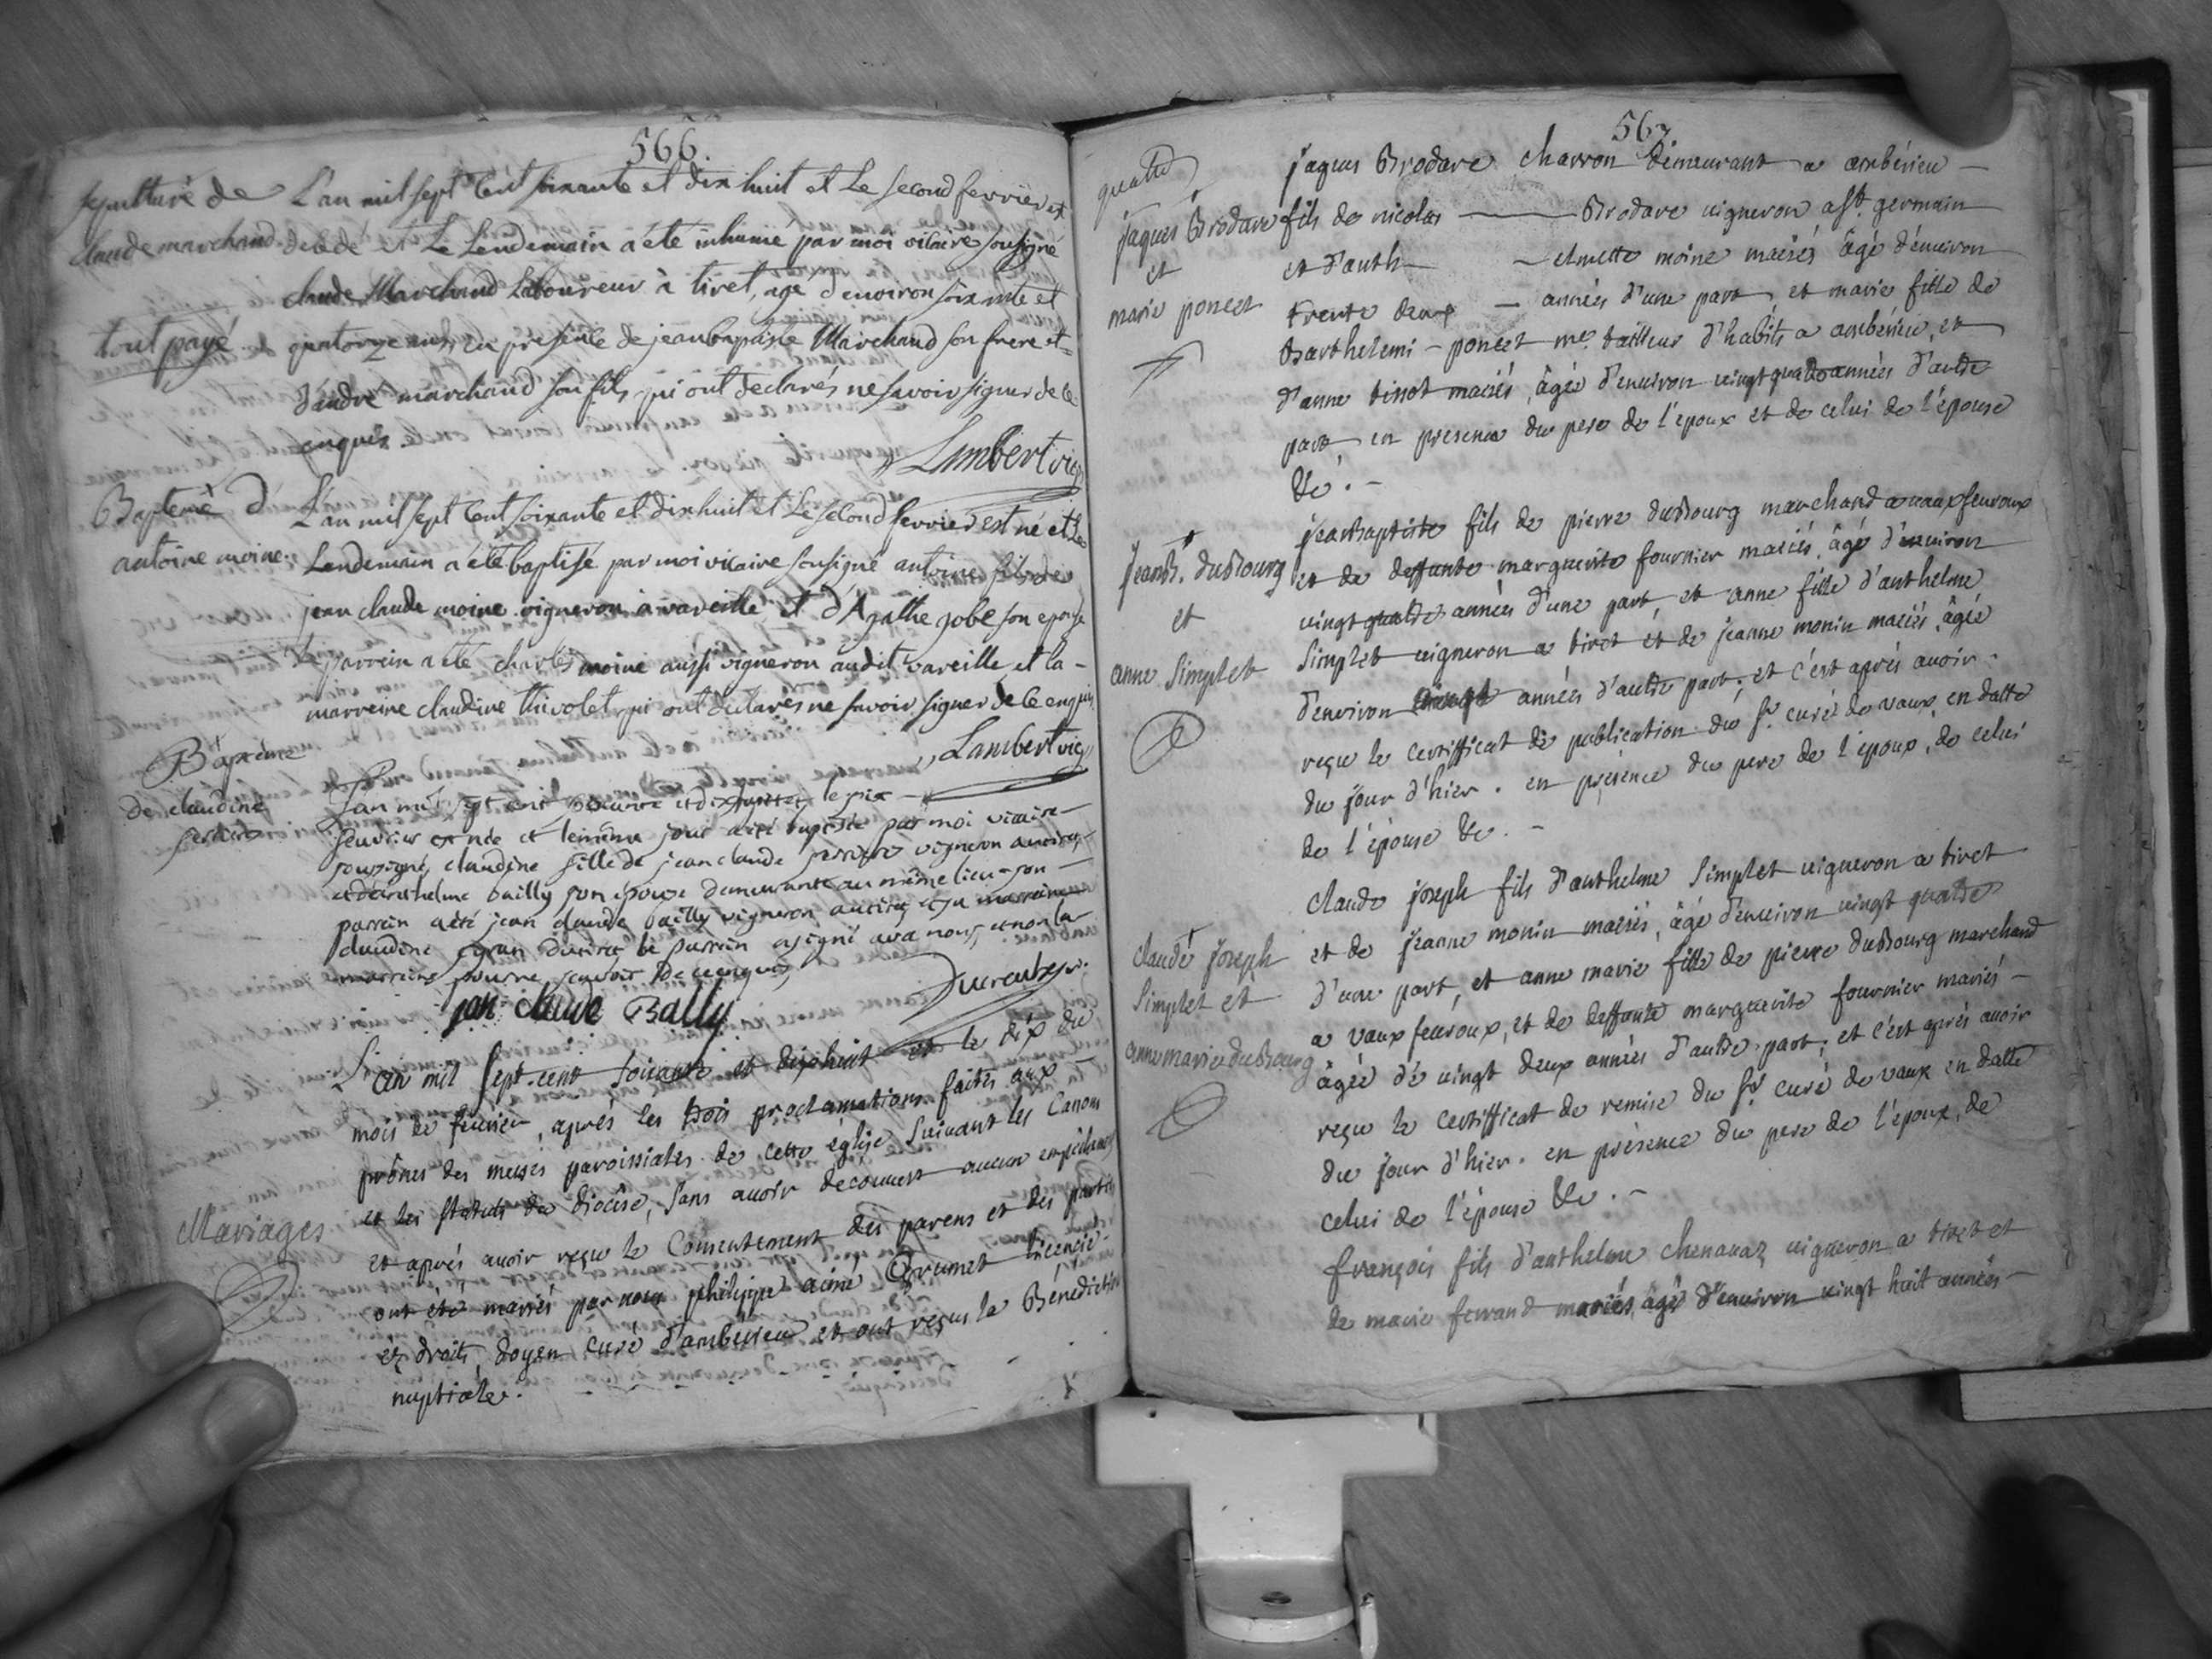 566
sepulture de
claude marchand
tout payé
L'an mil sept cent soixante et dix huit et le second fevrier est
decedé et le lendemain a été inhumé par moi vicaire sousigné
claude Marchand Laboureur à tiret, age d'environ soixante et
quatorze ans en presence de jean baptiste Marchand son frere et
d'andré marchand son fils qui ont declarés ne savoir signer de ce
enquis
Lambert vic
Bapteme d'
antoine moine
L'an mil sept cent soixante et dix huit et le second fevrier est né et le
Lendemain a été baptisé par moi vicaire sousigné antoine fils de
jean claude moine vigneron à vareille et d'Agathe gobe son epouse
le parrein a été charles moine aussi vigneron audit vareille et la
marreine claudine thivolet qui ont declarés ne savoir signer de ce enquis
Lambert vic
Bapteme
de claudine
L'an mil sept cent soixante et dix huit et le six
feuvrier est née et le même jour a été baptisée par moi vicaire
sousigné, claudine fille de jean claude vigneron
et d'anthelme bailly son épouse demeurante au même lieu son
parrein a été jean claude bailly vigneron et sa marraine
claudine le parrein a signé avec nous, et non la
marreine pour ne sçavoir de ce enquis
jan claude Bally
Mariages
L'an mil sept cent soixante et dix huit et le dix du
mois de fevrier, aprés les trois proclamations faites aux
prônes des messes paroissiales de cette église suivant les Canons
et les statuts du diocèse, sans avoir decouvert aucun empêchement
et aprés avoir reçu le Consentement des parens et des parties
ont été mariés par nous philippe aimé Grumet licencié
ez droits, doyen curé d'ambérieu et ont reçus la Bénédiction
nuptiale.
567
quatre
jaques Brodare
et
marie poncet
jaques Brodare charron demeurant a ambérieu
fils de nicolas Brodare vigneron a st germain
et d'anth elmette moine mariés âgé d'environ
trente deux années d'une part, et marie fille de
Barthelemi poncet me tailleur d'habits a ambérieu, et
d'anne tissot mariés, âgée d'environ vingt quatre années d'autre
part, en presence du pere de l'époux et de celui de l'épouse
&c.
jean b. duBourg
et
anne Simplet
jean baptiste fils de pierre duBourg marchand a vaux fevroux
et de deffunte marguerite fournier mariés, âgé d'environ
vingt quatre années d'une part, et anne fille d'anthelme
Simplet vigneron a tiret et de jeanne monin mariés, âgée
d'environ années d'autre part, et c'est aprés avoir
reçu le certifficat de publication du sr curé de vaux, en datte
du jour d'hier. en présence du pere de l'époux, de celui
de l'épouse &c.
claude joseph
Simplet et
anne marie duBourg
claude joseph fils d'anthelme Simplet vigneron a tiret
et de jeanne monin mariés, âgé d'environ vingt quatre
d'une part, et anne marie fille de pierre duBourg marchand
a vaux fevroux, et de deffunte marguerite fournier mariés
âgée de vingt deux années d'autre part, et c'est aprés avoir
reçu le certifficat de remise du sr curé de vaux en datte
du jour d'hier. en présence du pere de l'époux, de
celui de l'épouse &c.
françois fils d'anthelme chenavaz vigneron a tiret et
de marie ferrand mariés, âgé d'environ vingt huit années